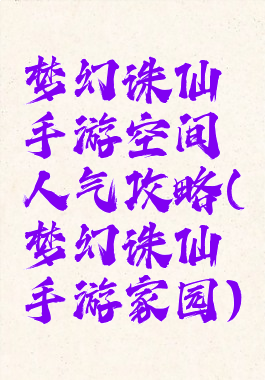 梦幻诛仙
手游空间
人气攻略(
梦幻诛仙
手游家园)